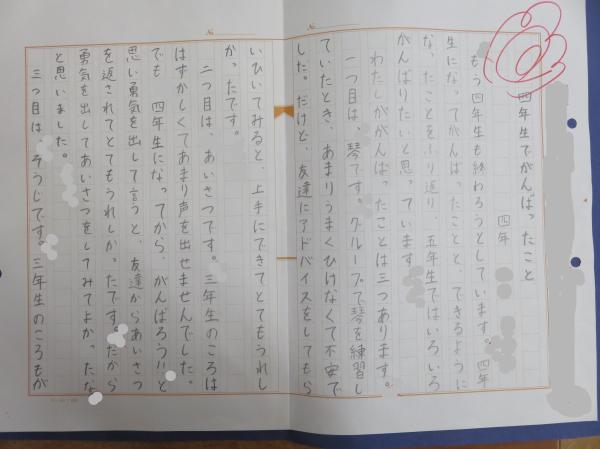 四年生でがんばったこと
四年
もう四年生も終わろうとしています。四年
生になってがんばったことと、できるように
なったことをふり返り、五年生ではいろいろ
がんばりたいと思っています。
わたしががんばったことは三つあります。
一つ目は、琴です。グループで琴を練習し
ていたとき、あまりうまくひけなくて不安で
した。だけど、友達にアドバイスをしてもら
いひいてみると、上手にできてとてもうれし
かったです。
二つ目は、あいさつです。三年生のころは
はずかしくてあまり声を出せませんでした。
でも、四年生になってから、がんばろう!!と
思い勇気を出して言うと、友達からあいさつ
を返されてとてもうれしかったです。だから
勇気を出してあいさつをしてみてよかったな
と思いました。
三つ目は、そうじです。三年生のころもが